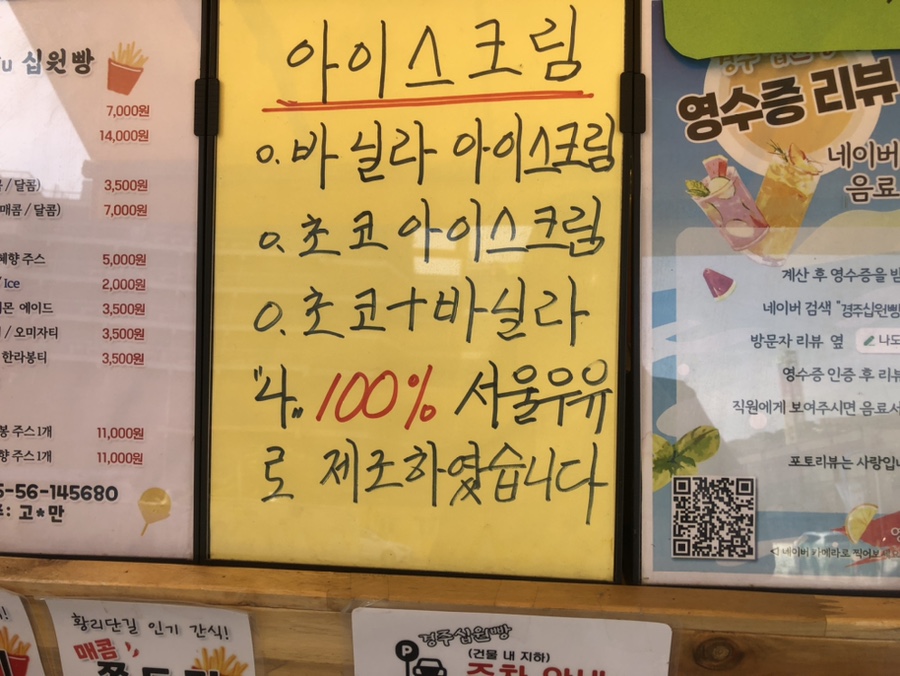 십원빵
7,000원
14,000원
/달콤) 3,500원
매콤/달콤) 7,000원
주스 5,000원
/Ice 2,000원
에이드 3,500원
/ 오미자티 3,500원
한라봉티 3,500원
봉 주스1개 11,000원
향 주스1개 11,000원
5-56-145680
: 고*만
아이스크림
o. 바닐라 아이스크림
o. 초코아이스크림
o. 초코+바닐라
100% 서울우유
로 제조하였습니다
영수증 리뷰
네이버
음료
계산 후 영수증을 받
네이버 검색 "경주십원빵
방문자 리뷰 옆 나도
영수증 인증 후 리뷰
직원에게 보여주시면 음료서
포토리뷰는 사랑입니
◁ 네이버 카메라로 찍어보세요
황리단길 인기 간식!
매콤
경주십원빵
(건물 내 지하)
주차 안내